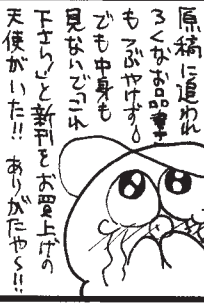 原稿に追われ
ろくなお品書き
もつぶやけず。
でも中身も
見ないで「これ
下さい!」と新刊をお買上げの
天使がいた!! ありがたや〜!!